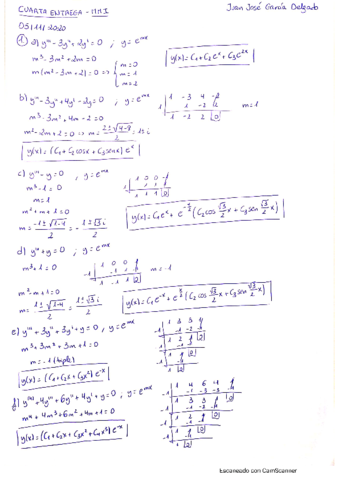 CUARTA ENTREGA - MMI
Juan José García Delgado
05/11/2020
① a) y''' - 3y'' + 2y' = 0 ; y = e^mx
m³ - 3m² + 2m = 0
m(m² - 3m + 2) = 0 => { m = 0 m = 1 m = 2
y(x) = C₁ + C₂e^x + C₃e^2x
b) y''' - 3y'' + 4y' - 2y = 0 ; y = e^mx
m³ - 3m² + 4m - 2 = 0
1 -3 4 -2
1 | 1 -2 2
1 -2 2 |0
m = 1
m² - 2m + 2 = 0 => m = (2 ± √(4-8))/2 = 1 ± i
y(x) = (C₁ + C₂cosx + C₃senx) e^x
c) y''' - y = 0 ; y = e^mx
m³ - 1 = 0
m = 1
1 0 0 -1
1 | 1 1 1
1 1 1 |0
m² + m + 1 = 0
m = (-1 ± √(1-4))/2 = (-1 ± √3 i)/2
y(x) = C₁e^x + e^(-x/2) (C₂cos √3/2 x + C₃sen √3/2 x)
d) y''' + y = 0 ; y = e^mx
m³ + 1 = 0
1 0 0 1
-1 | -1 1 -1
1 -1 1 |0
m = -1
m² - m + 1 = 0
m = (1 ± √(1-4))/2 = (1 ± √3 i)/2
y(x) = C₁e^-x + e^(x/2) (C₂cos √3/2 x + C₃sen √3/2 x)
e) y''' + 3y'' + 3y' + y = 0 ; y = e^mx
m³ + 3m² + 3m + 1 = 0
m = -1 (triple)
1 3 3 1
-1 | -1 -2 -1
1 2 1 |0
-1 | -1 -1
1 1 |0
y(x) = (C₁ + C₂x + C₃x²) e^-x
f) y'''' + 4y''' + 6y'' + 4y' + y = 0 ; y = e^mx
m⁴ + 4m³ + 6m² + 4m + 1 = 0
1 4 6 4 1
-1 | -1 -3 -3 -1
1 3 3 1 |0
-1 | -1 -2 -1
1 2 1 |0
-1 | -1 -1
1 1 |0
y(x) = (C₁ + C₂x + C₃x² + C₄x³) e^-x
Escaneado con CamScanner